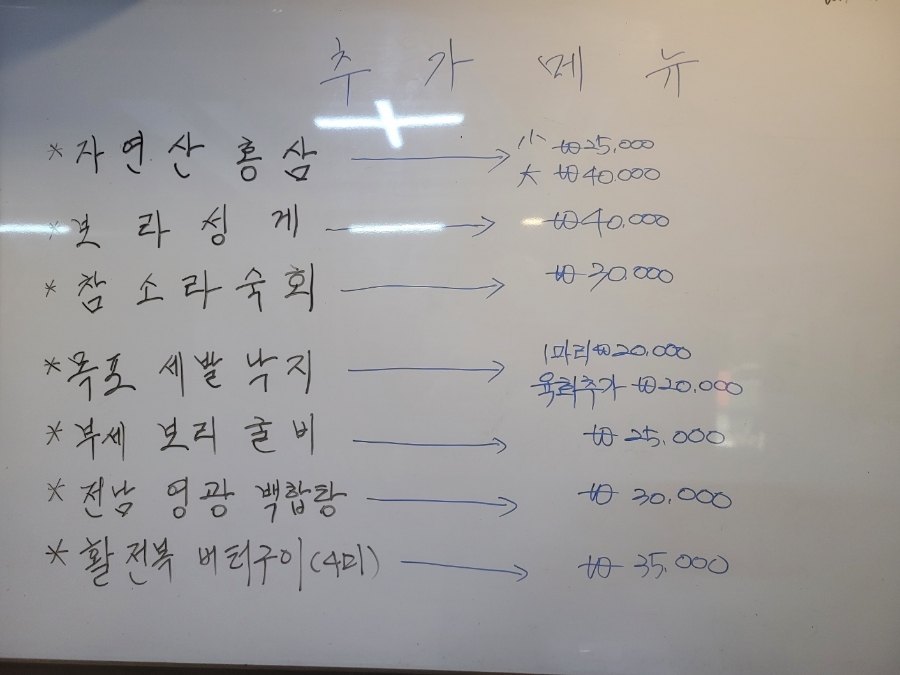 추 가 메 뉴
* 자연산 홍삼 → 小 ₩25,000
大 ₩40,000
* 보라성게 → ₩40,000
* 참소라숙회 → ₩30,000
* 목포 세발낙지 → 1마리 ₩20,000
육회추가 ₩20,000
* 부세 보리굴비 → ₩25,000
* 전남 영광 백합탕 → ₩30,000
* 활전복 버터구이(4미) → ₩35,000